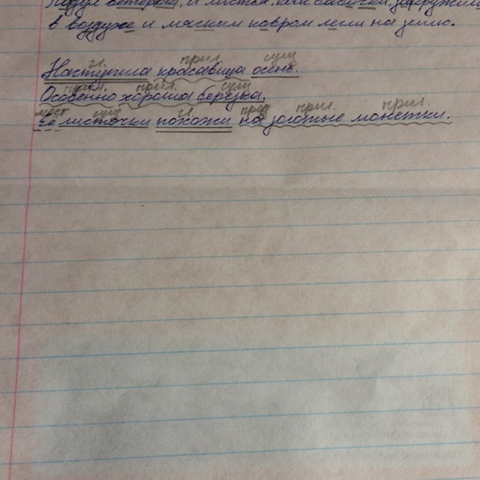 ветерок, и листья, как бабочки, закружили
в воздухе и мягким ковром легли на землю.
гл. прил. сущ
Наступила красавица осень.
прил. сущ
Особенно хороша берёзка.
мест сущ гл. пред прил. прил.
Её листочки похожи на золотые монетки.